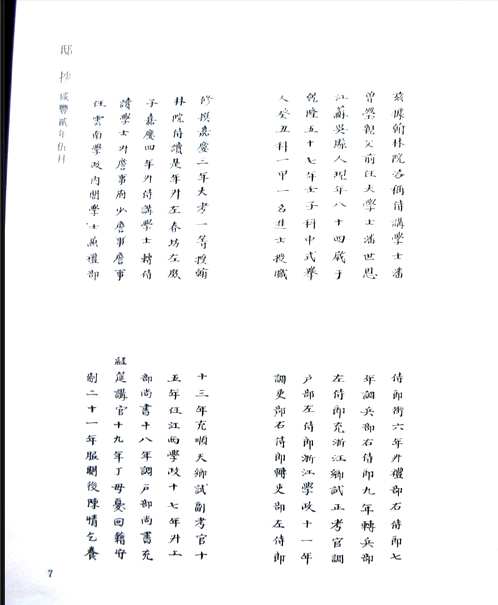 茲據翰林院咨稱侍講學士潘
曾瑩親父前任大學士潘世恩
江蘇吳縣人現年八十四歲于
乾隆五十七年壬子科中式舉
人癸丑科一甲一名進士授職
修撰嘉慶二年大考一等授翰
林院侍讀是年升左春坊左庶
子嘉慶四年升侍講學士轉侍
讀學士升詹事府少詹事詹事
任雲南學政內閣學士兼禮部
侍郎銜六年升禮部右侍郎七
年調兵部右侍郎九年轉兵部
左侍郎充浙江鄉試正考官調
戶部左侍郎浙江學政十一年
調吏部右侍郎轉吏部左侍郎
十三年充順天鄉試副考官十
五年任江西學政十七年升工
部尚書十八年調戶部尚書充
經筵講官十九年丁母憂回籍守
制二十一年服闋後陳情乞養
邸抄 咸豐貳年伍月
7